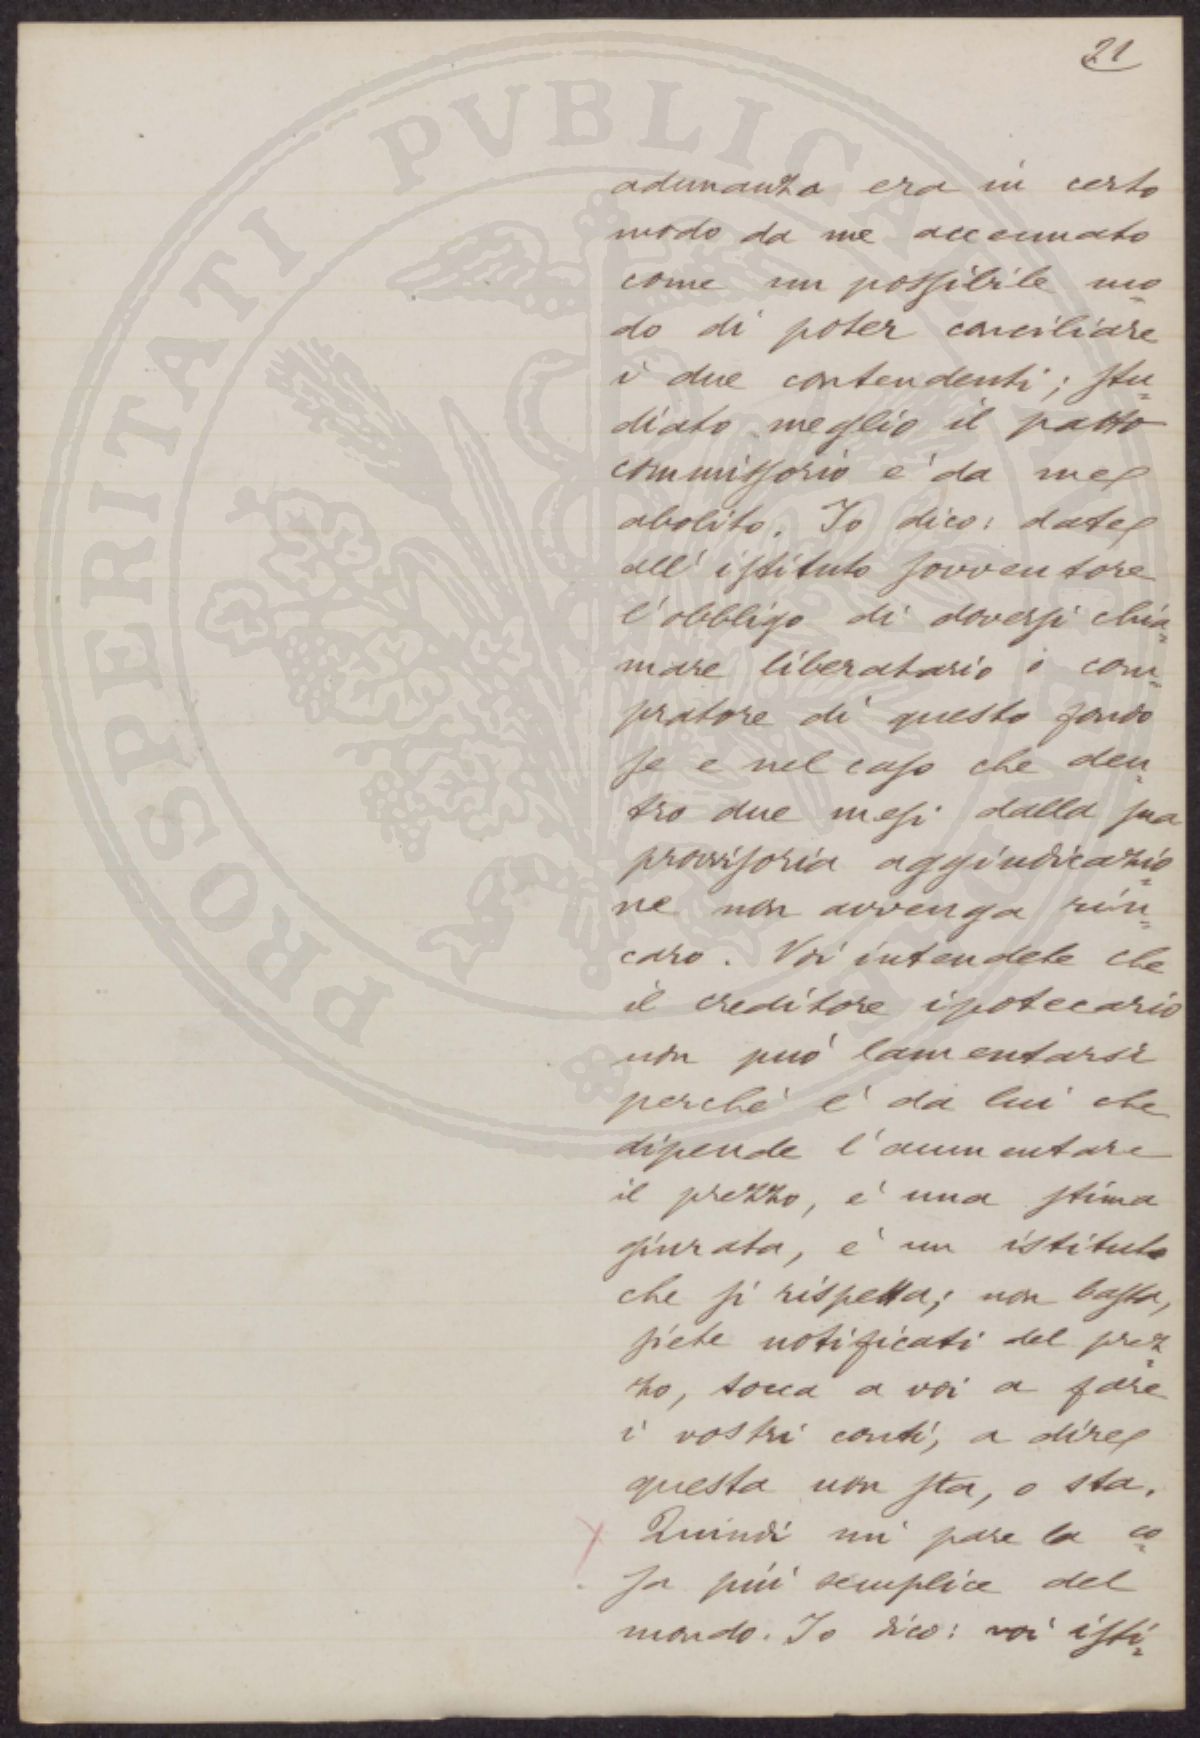 21
adunanza era in certo
modo da me accennato
come un possibile mo=
do di poter conciliare
i due contendenti; stu=
diato meglio il patto
commissorio e' da me
abolito. Io dico: date
all' istituto sovventore
l'obbligo di doversi chia=
mare liberatario o com=
pratore di questo fondo
se e nel caso che den=
tro due mesi dalla sua
provvisoria aggiudicazio=
ne non avvenga rin=
caro. Voi intendete che
il creditore ipotecario
non può lamentarsi
perché è da lui che
dipende l'aumentare
il prezzo, è una stima
giurata, è un istituto
che si rispetta; non basta,
siete notificati del prez=
zo, tocca a voi a fare
i vostri conti, a dire
questa non sta, o sta.
Quindi mi pare la co=
sa più semplice del
mondo. Io dico: voi isti=
PROSPERITATI PVBLICAE